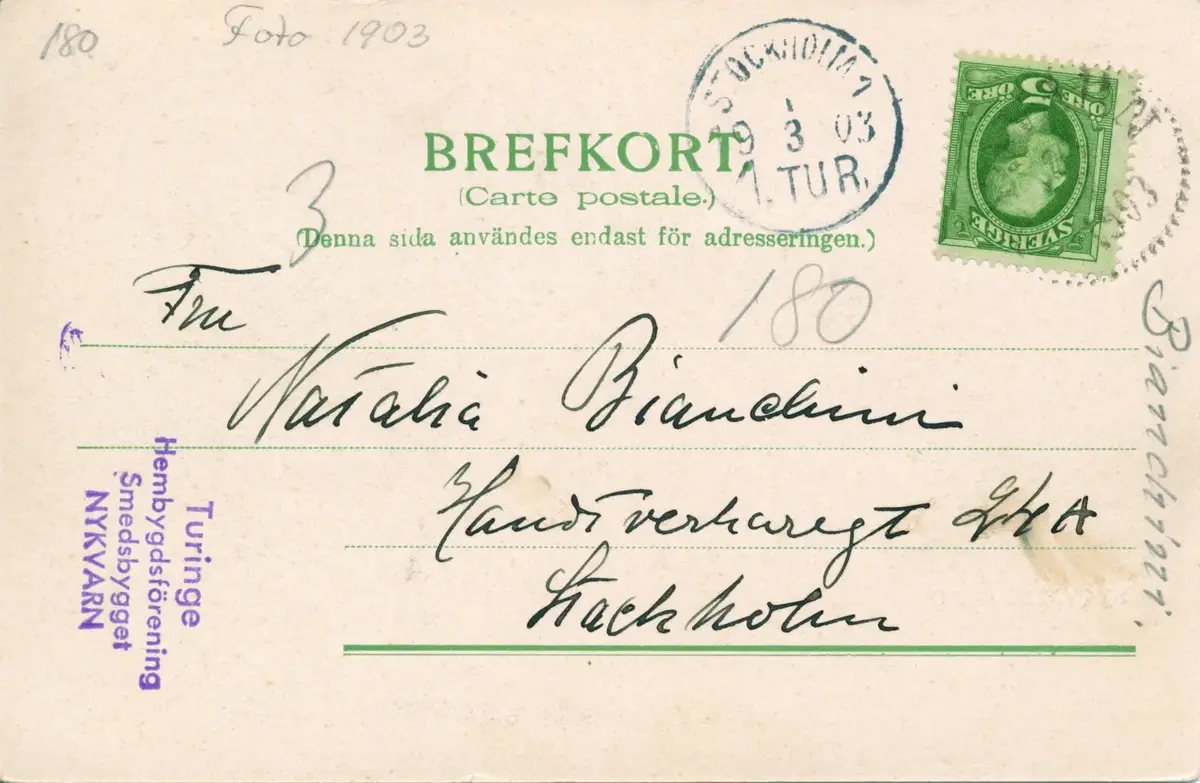 180
Foto 1903
STOCKHOLM 1
1
9 3 03
1. TUR.
5
ÖRE ÖRE
SVERIGE
BREFKORT
(Carte postale.)
(Denna sida användes endast för adresseringen.)
3
180
Fru
Natalia Bianchini
Handtverkaregt 24 A
Stockholm
Bianchini
Turinge
Hembygdsförening
Smedsbygget
NYKVARN